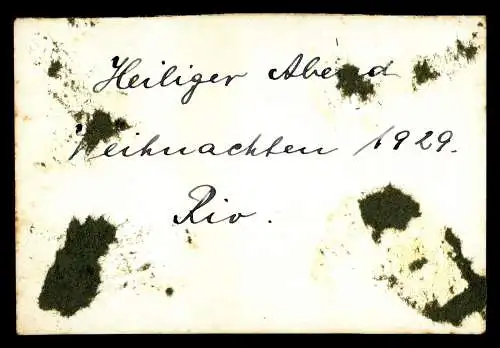 Heiliger Abend
Weihnachten 1929.
Rio.